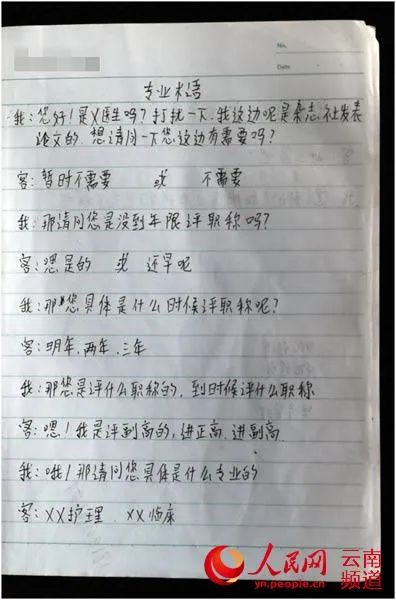 No.
Date
专业术语
我:您好!是X医生吗?打扰一下,我这边呢是杂志社发表
论文的,想请问一下您这边有需要吗?
客:暂时不需要 或 不需要
我:那请问您是没到年限评职称吗?
客:嗯是的 或 还早呢
我:那您具体是什么时候评职称呢?
客:明年、两年、三年
我:那您是评什么职称的,到时候评什么职称
客:嗯!我是评副高的,进正高、进副高
我:哦!那请问您具体是什么专业的
客:XX护理 XX临床
人民网 云南频道
yn.people.cn